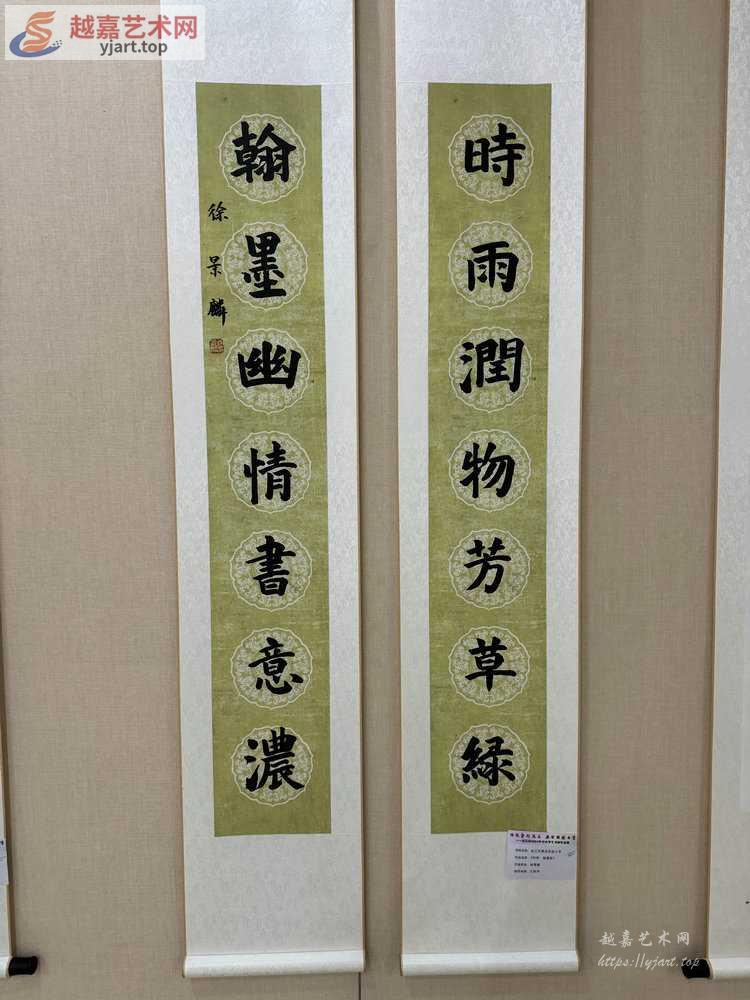 越嘉艺术网
yjart.top
時雨潤物芳草緑
翰墨幽情書意濃
徐景麟
越嘉艺术网
https://yjart.top